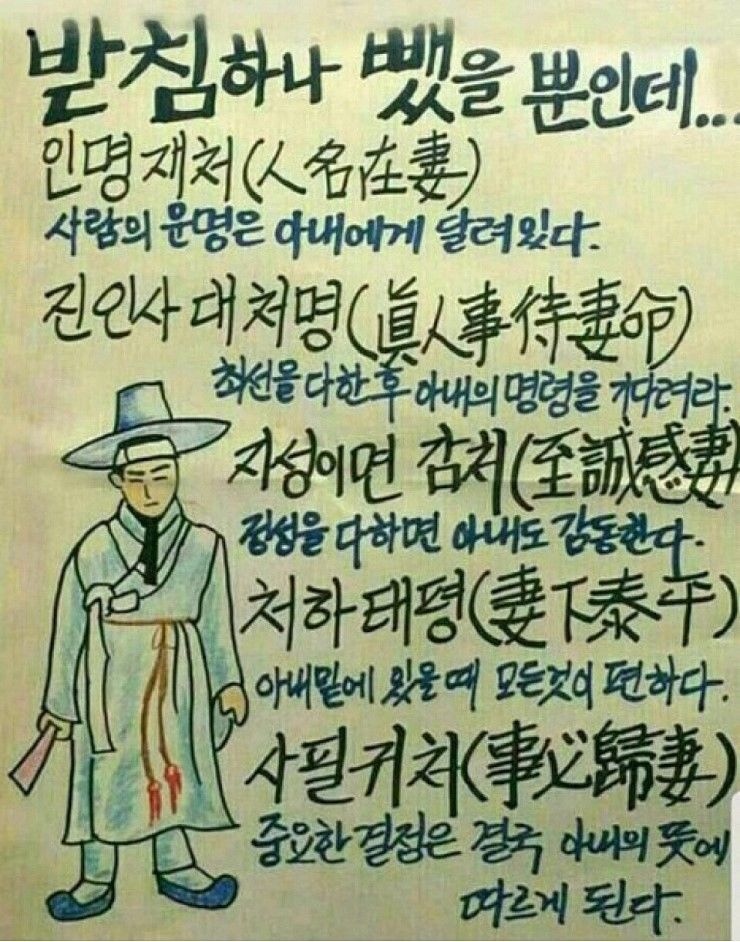 받침하나 뺐을 뿐인데...
인명재처(人名在妻)
사람의 운명은 아내에게 달려있다.
진인사대처명(眞人事待妻命)
최선을 다한 후 아내의 명령을 기다려라.
지성이면 감처(至誠感妻)
정성을 다하면 아내도 감동한다.
처하태평(妻下泰平)
아내밑에 있을때 모든것이 편하다.
사필귀처(事必歸妻)
중요한 결정은 결국 아내의 뜻에
따르게 된다.